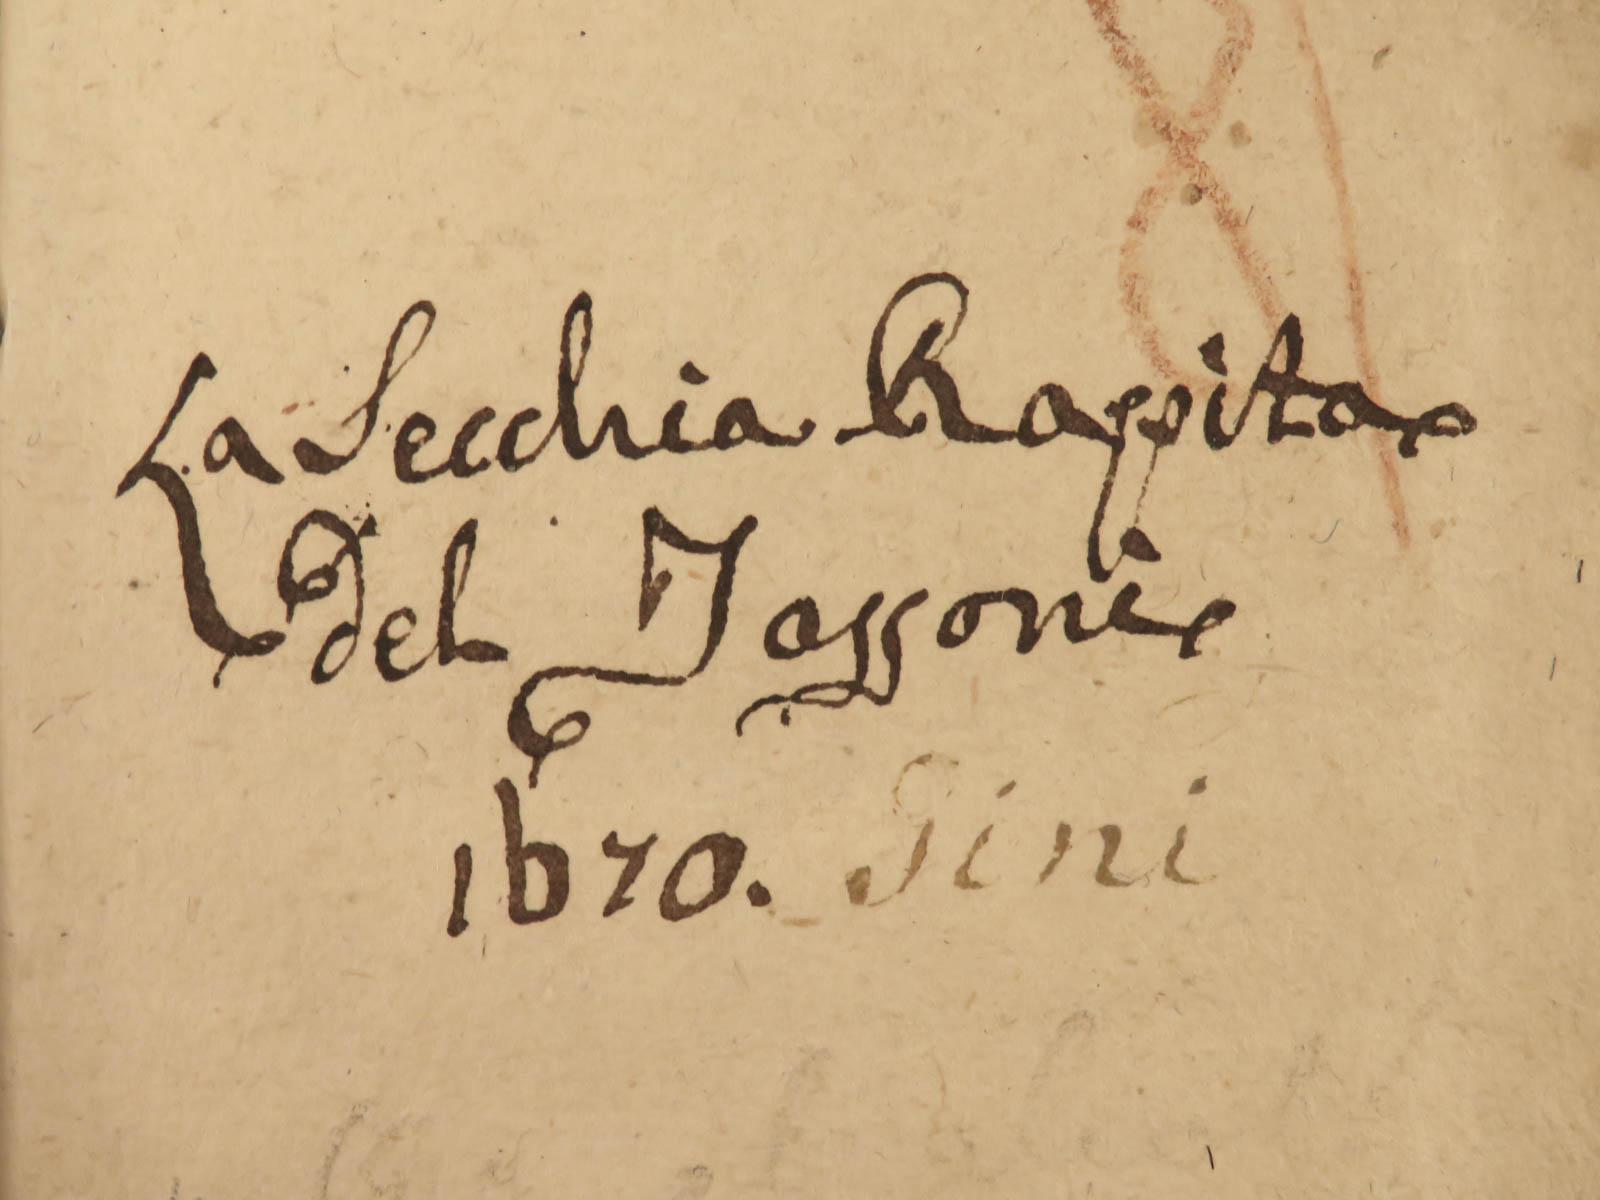 La Secchia Rappita
del Tassoni
1670. Gini